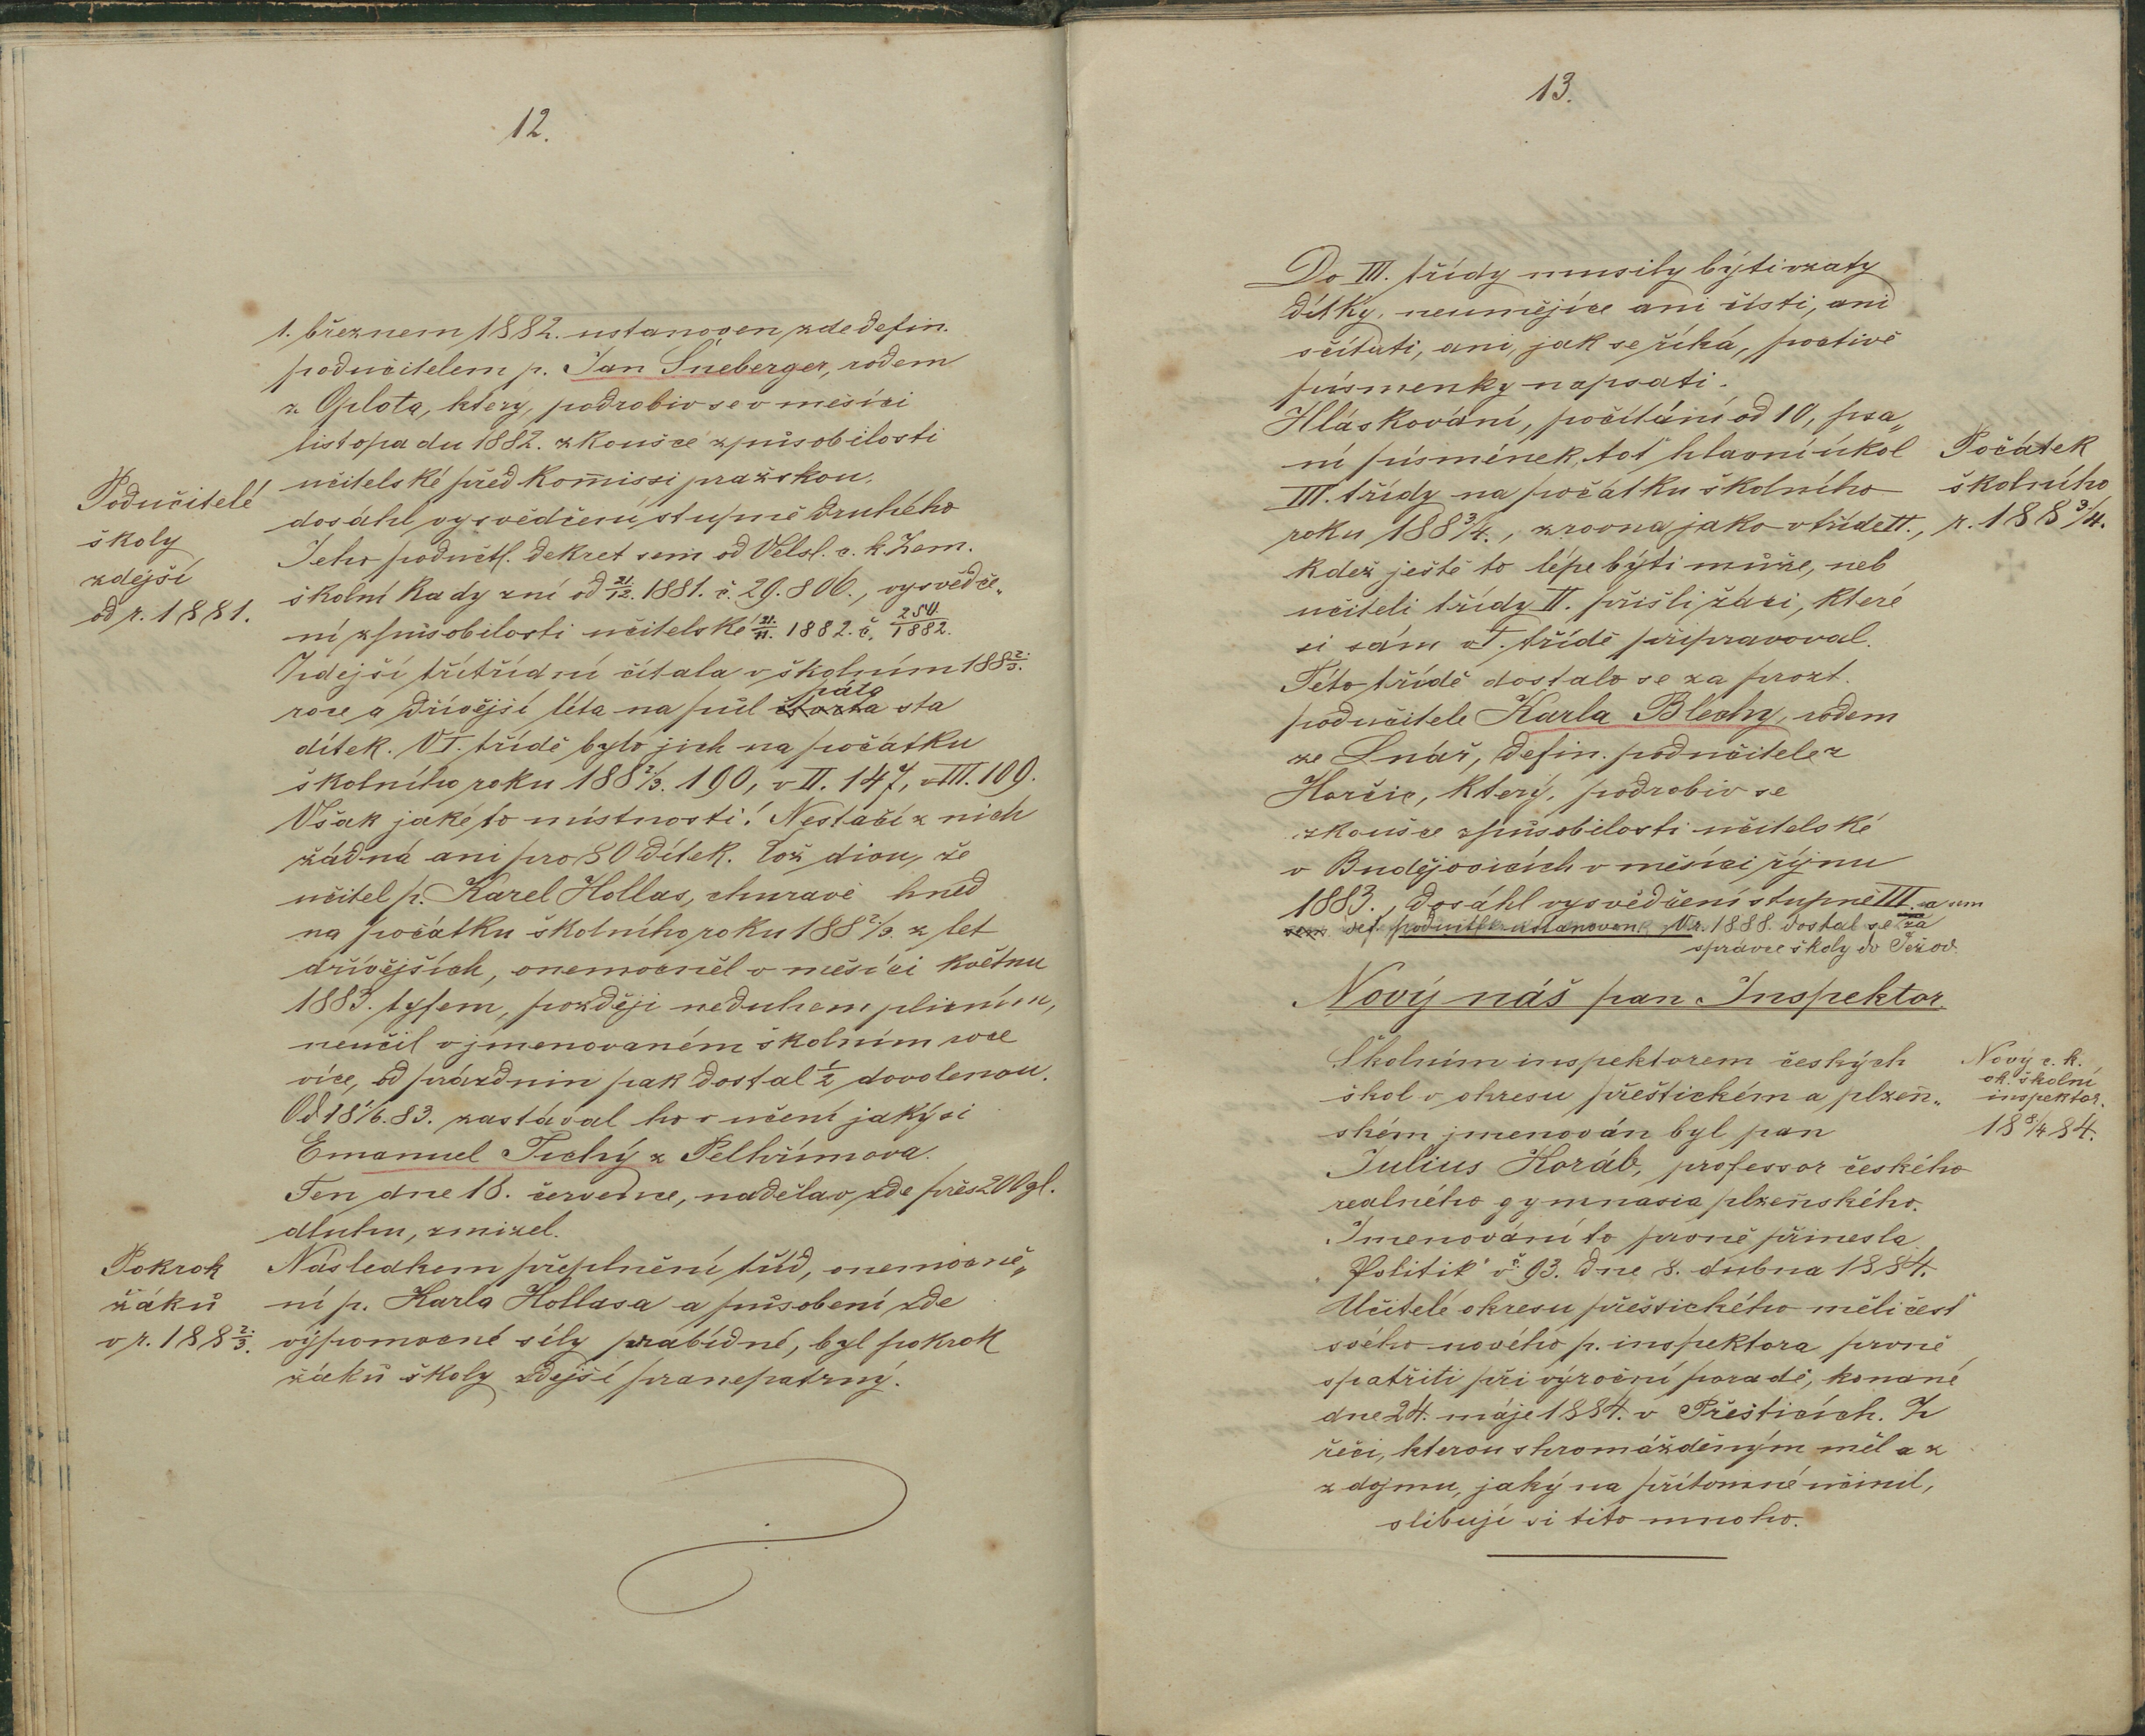 12.
1. březnem 1882. ustanoven zde defin.
podučitelem p. Jan Šneberger, rodem
z Oplota, který, podrobiv se v měsíci
listopadu 1882. zkoušce způsobilosti
učitelské před kom̄issi pražskou,
Podučitelé
školy
zdejší
od r. 1881.
dosáhl vysvědčení stupně druhého
Jeho podučtl. dekret sem od Velsl. c. k. Zem.
školní Rady zní od 21/12. 1881. č. 29.806., vysvědče„
ní způsobilosti učitelské 21/11. 1882. č. 254./1882.
Zdejší třítřídní čítala v školním 188 2/3.
roce a dřívější léta na půl čtvrta páta sta
dítek. V I. třídě bylo jich na počátku
školního roku 188 2/3. 190, v II. 147, v III. 109.
Však jaké to místnosti! Nestačí z nich
žádná ani pro 80 dítek. Což divu, že
učitel p. Karel Hollas, churavě hned
na počátku školního roku 188 2/3. z let
dřívějších, onemocněl v měsíci květnu
1883. tyfem, později neduhem plicním,
neučil v jmenovaném školním roce
více, od prázdnin pak dostal 1/2 dovolenou.
Od 18 1/6. 83. zastával ho v učení jakýsi
Emanuel Tichý z Pelhřimova.
Ten dne 18. července, nadělav zde přes 200 zl.
dluhu, zmizel.
Pokrok
žáků
v r. 188 2/3.
Následkem přeplnění tříd, onemocně„
ní p. Karla Hollasa a působení zde
výpomocné síly prabídné, byl pokrok
žáků školy zdejší pranepatrný.
13.
Do III. třídy musily býti vzaty
dítky, neumějíce ani čísti, ani
sčítati, ani, jak se říká, poctivě
písmenky napsati.
Hláskování, počítání od 10, psa„
ní písmének, toť hlavní úkol
III. třídy na počátku školního
roku 188 3/4., zrovna jako v třídě II.,
Počátek
školního
r. 188 3/4.
kdež ještě to lépe býti může, neb
učiteli třídy II. přišli žáci, které
si sám v I. třídě připravoval.
Této třídě dostalo se za prozt.
podučitele Karla Blechy, rodem
ze Lnář, defin. podučitele z
Horčic, který, podrobiv se
zkoušce způsobilosti učitelské
v Budějovicích v měsíci říjnu
1883., dosáhl vysvědčení stupně III. a um
def. podučitl. ustanoven. V r. 1888. dostal se za
správce školy do Težov.
Nový náš pan Inspektor.
Školním inspektorem českých
škol v okresu přeštickém a plzeň„
ském jmenován byl pan
Nový c. k.
ok. školní
inspektor.
18 8/4 84.
Julius Koráb, professor českého
realného gymnasia plzeňského.
Jmenování to prvně přinesla
„Politik“ v č. 93. dne 8. dubna 1884.
Učitelé okresu přeštického měli čest
svého nového p. inspektora prvně
spatřiti při výroční poradě, konané
dne 24. máje 1884. v Přešticích. Z
řeči, kterou shromážděným měl a z
z dojmu, jaký na přítomné učinil,
slibují si tito mnoho.